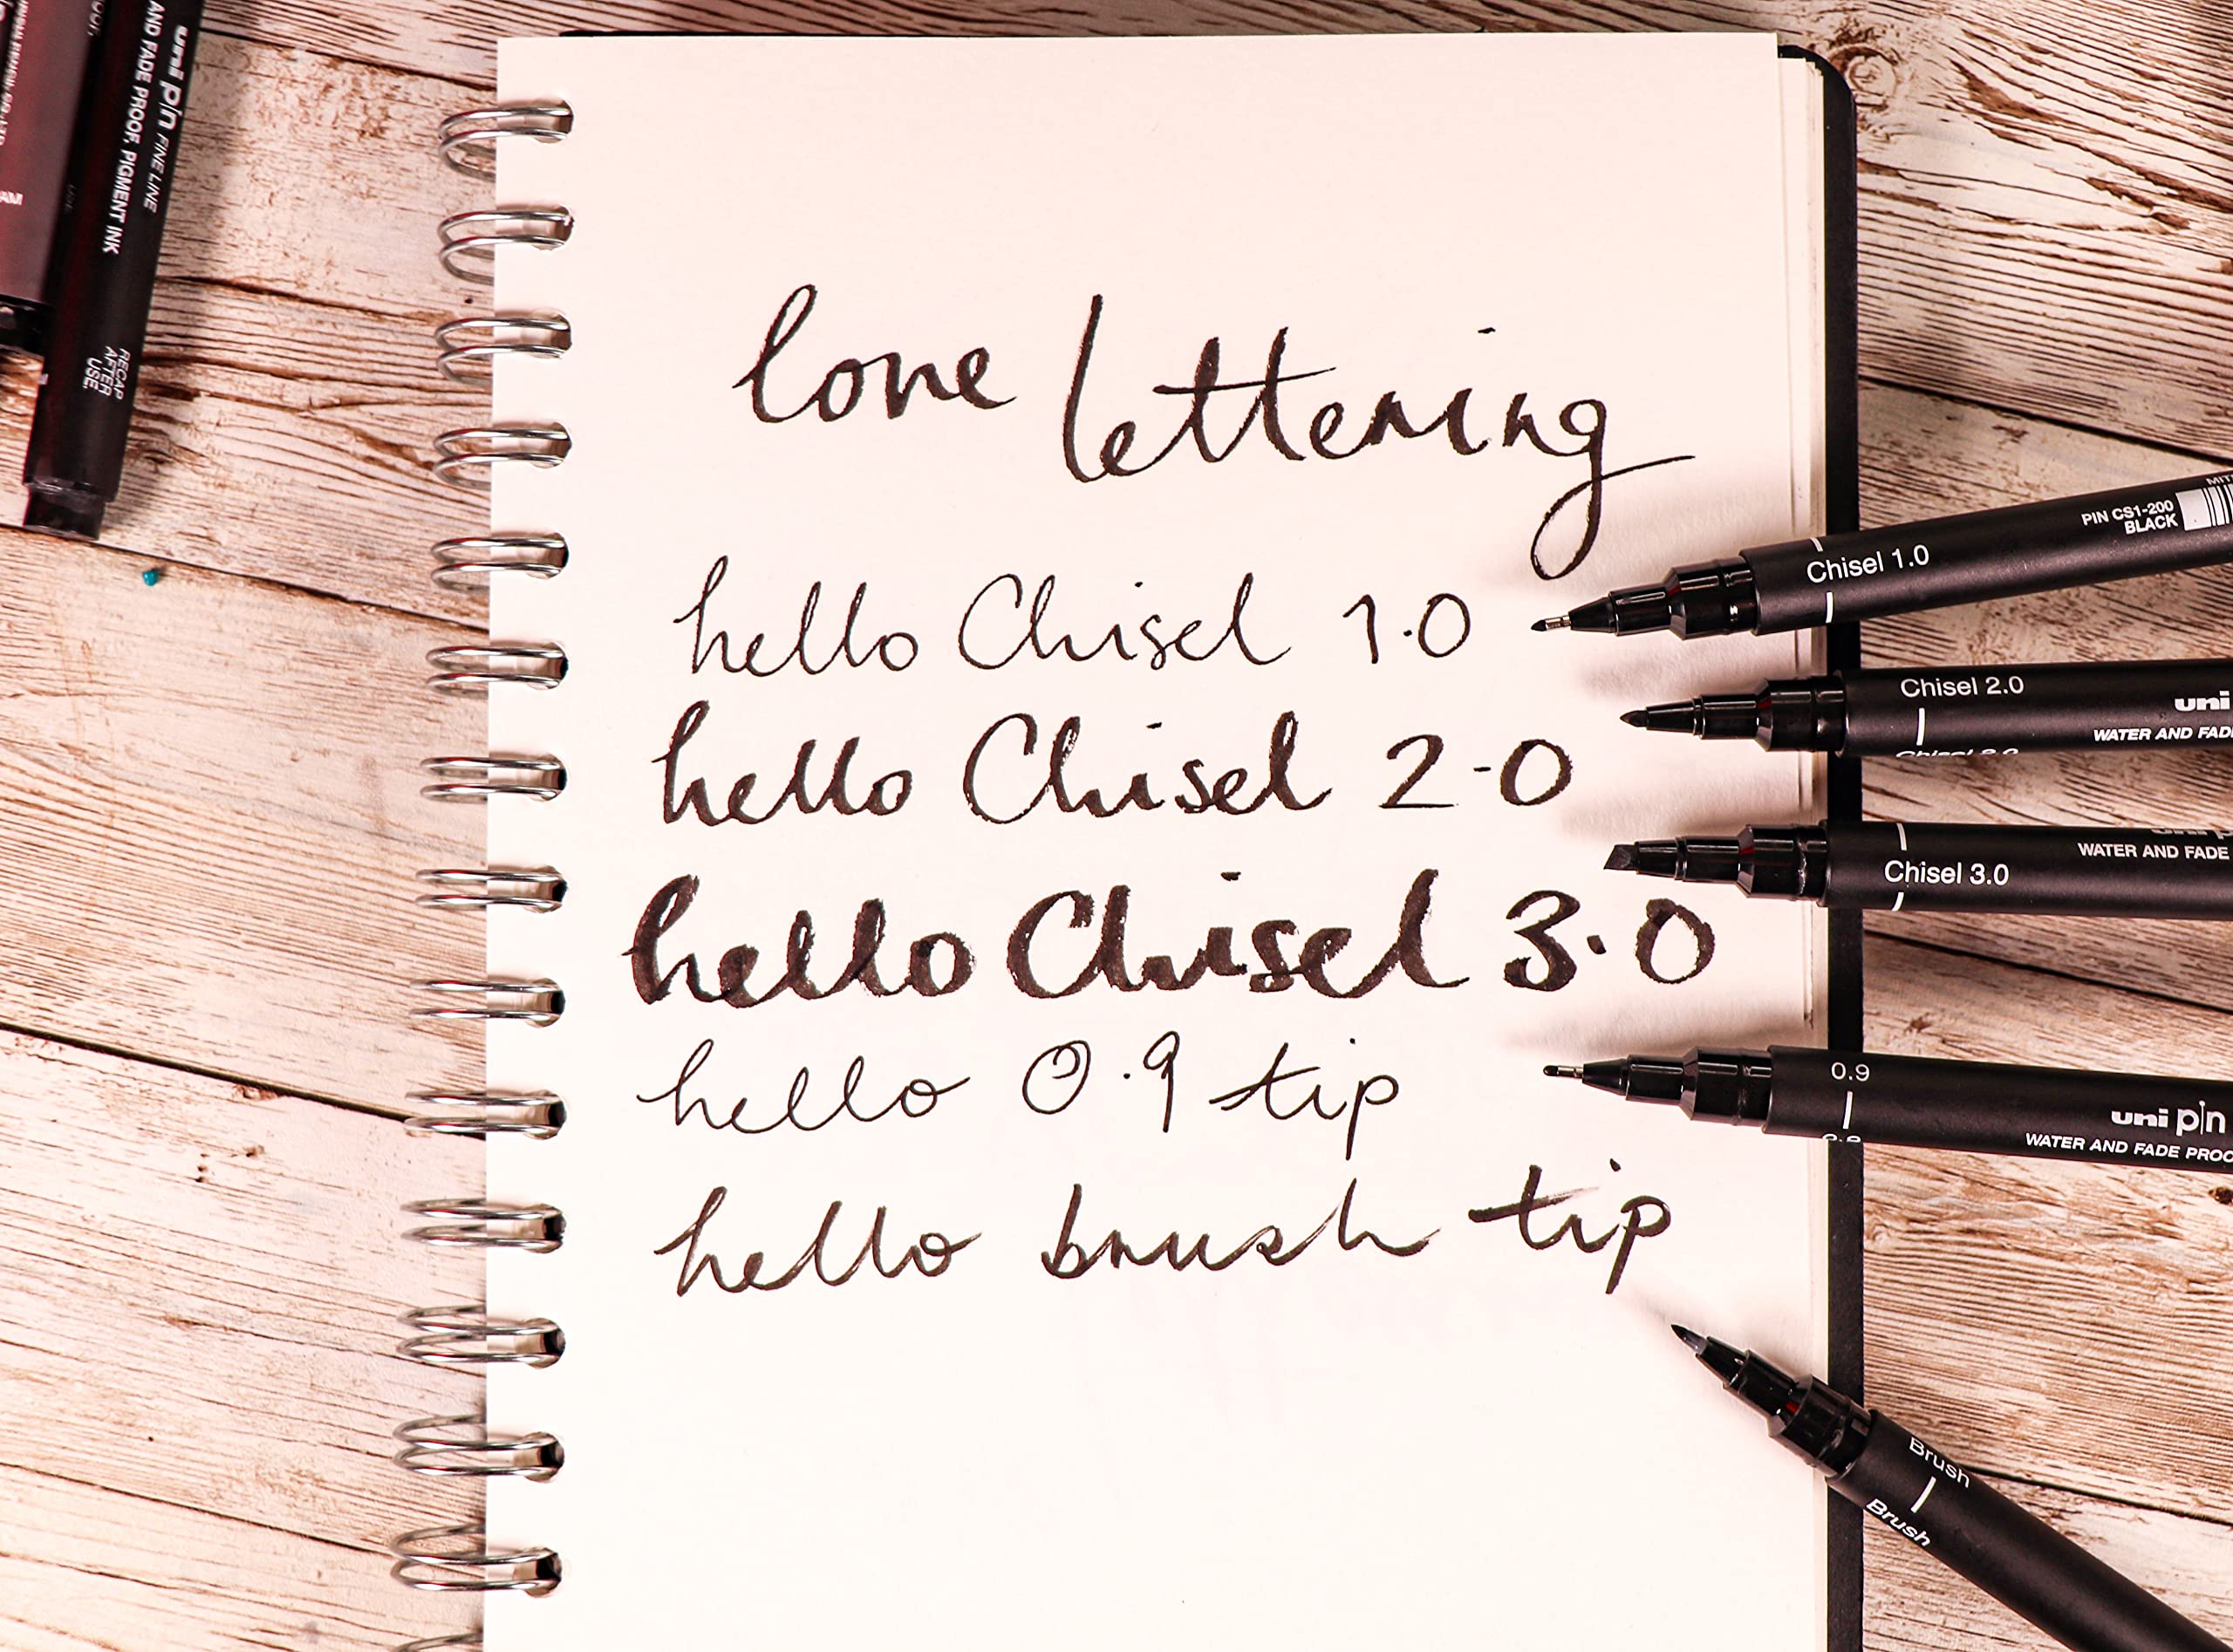 love lettering
hello Chisel 1.0
hello Chisel 2.0
hello Chisel 3.0
hello 0.9 tip
hello brush tip
uni pin FINE LINE
AND FADE PROOF, PIGMENT INK
RECAP
AFTER
USE.
PIN CS1-200
BLACK
Chisel 1.0
Chisel 2.0
uni
WATER AND FADE
Chisel 2.0
WATER AND FADE
Chisel 3.0
0.9
uni pin
WATER AND FADE PROO
0.9
Brush
Brush